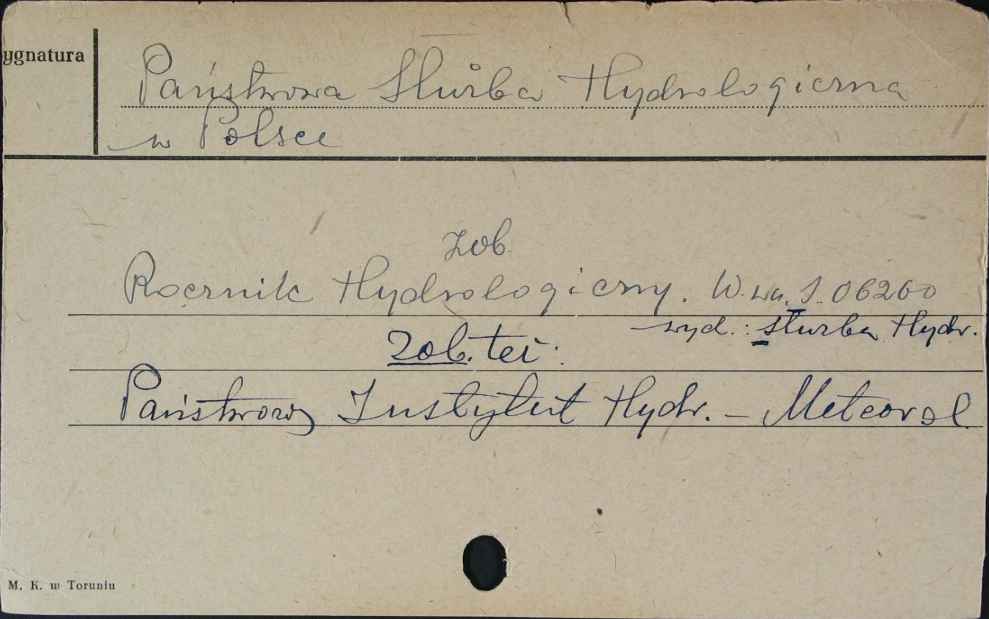 ygnatura
Państwowa Służba Hydrologiczna
w Polsce
zob.
Rocznik Hydrologiczny. W-wa. S. 06260
wyd.: Służba Hydr.
Zob. też:
Państwowy Instytut Hydr. – Meteorol.
M. K. w Toruniu